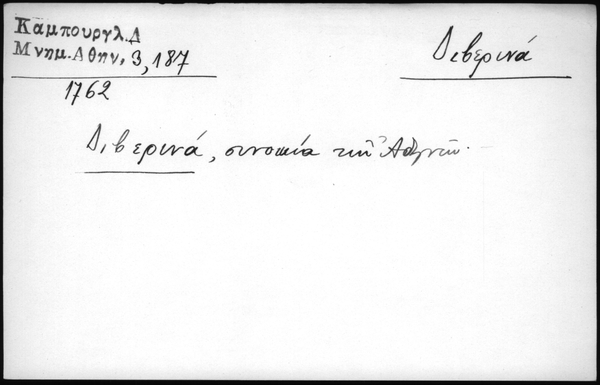 Καμπουργλ.Δ
Μνημ.Αθην. 3, 187
Διβερινά
1762
Διβερινά, συνοικία τῶν Ἀθηνῶν.